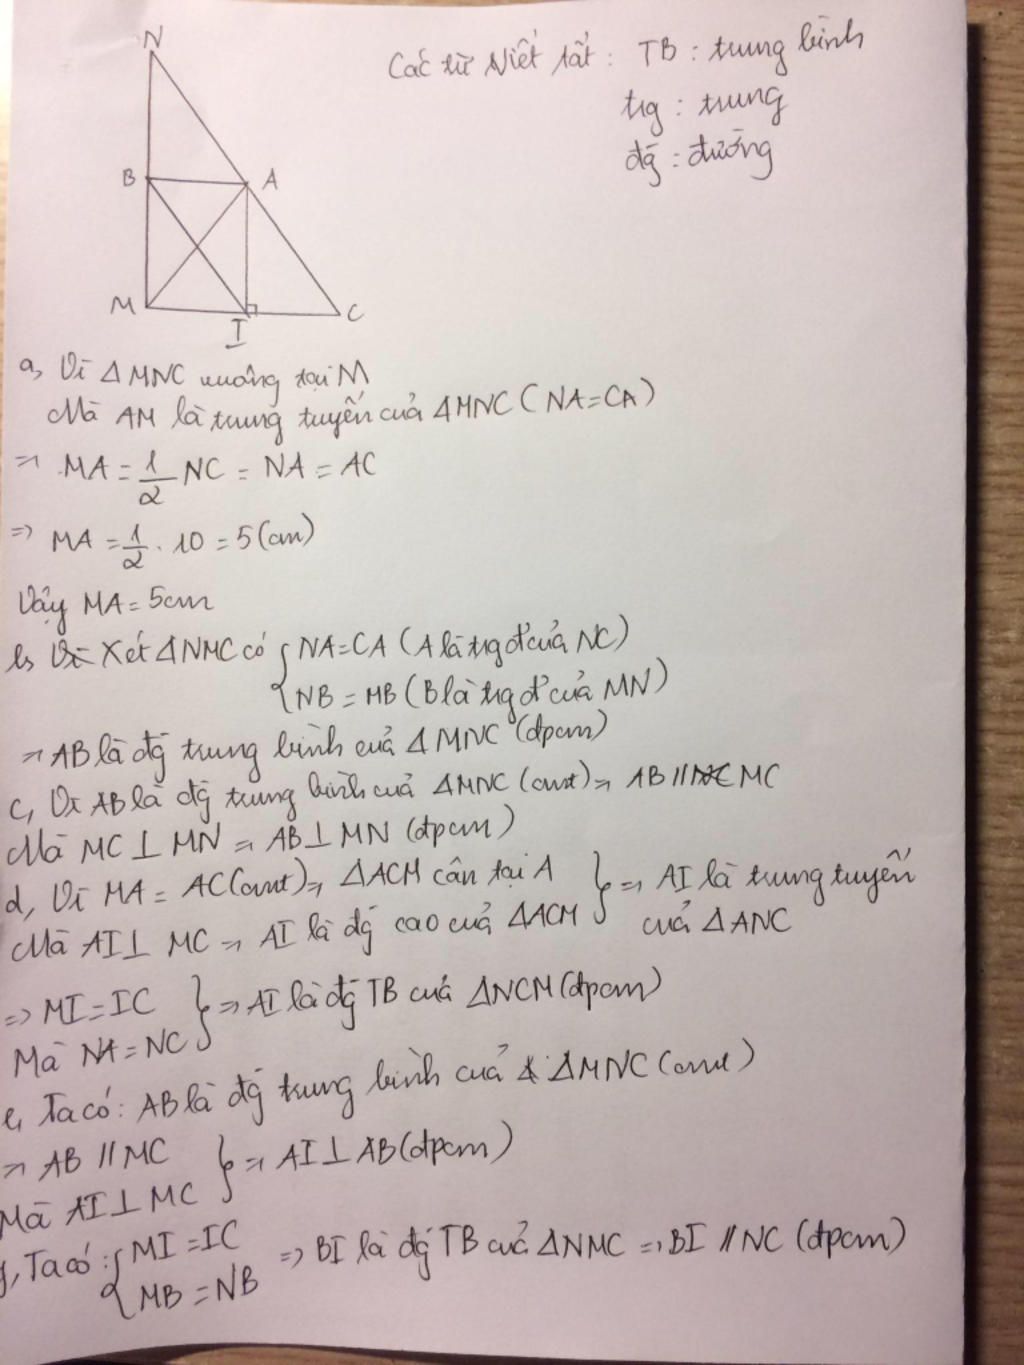 N
Các từ viết tắt: TB: trung bình
trg: trung
đg: đường
B A
M I C
a, Vì ΔMNC vuông tại M
Mà AM là trung tuyến của ΔMNC (NA=CA)
=> MA = 1/2 NC = NA = AC
=> MA = 1/2 . 10 = 5 (cm)
Vậy MA = 5cm
b, Xét ΔNMC có { NA=CA (A là trg đ' của NC)
NB = MB (B là trg đ' của MN)
=> AB là đg trung bình của ΔMNC (đpcm)
c, Vì AB là đg trung bình của ΔMNC (cmt) => AB // MC
Mà MC ⊥ MN => AB ⊥ MN (đpcm)
d, Vì MA = AC (cmt) => ΔACM cân tại A } => AI là trung tuyến
Mà AI ⊥ MC => AI là đg cao của ΔACM của ΔANC
=> MI = IC } => AI là đg TB của ΔNCM (đpcm)
Mà NA = NC
e, Ta có: AB là đg trung bình của ΔMNC (cmt)
=> AB // MC } => AI ⊥ AB (đpcm)
Mà AI ⊥ MC
Ta có: { MI = IC => BI là đg TB của ΔNMC => BI // NC (đpcm)
MB = NB